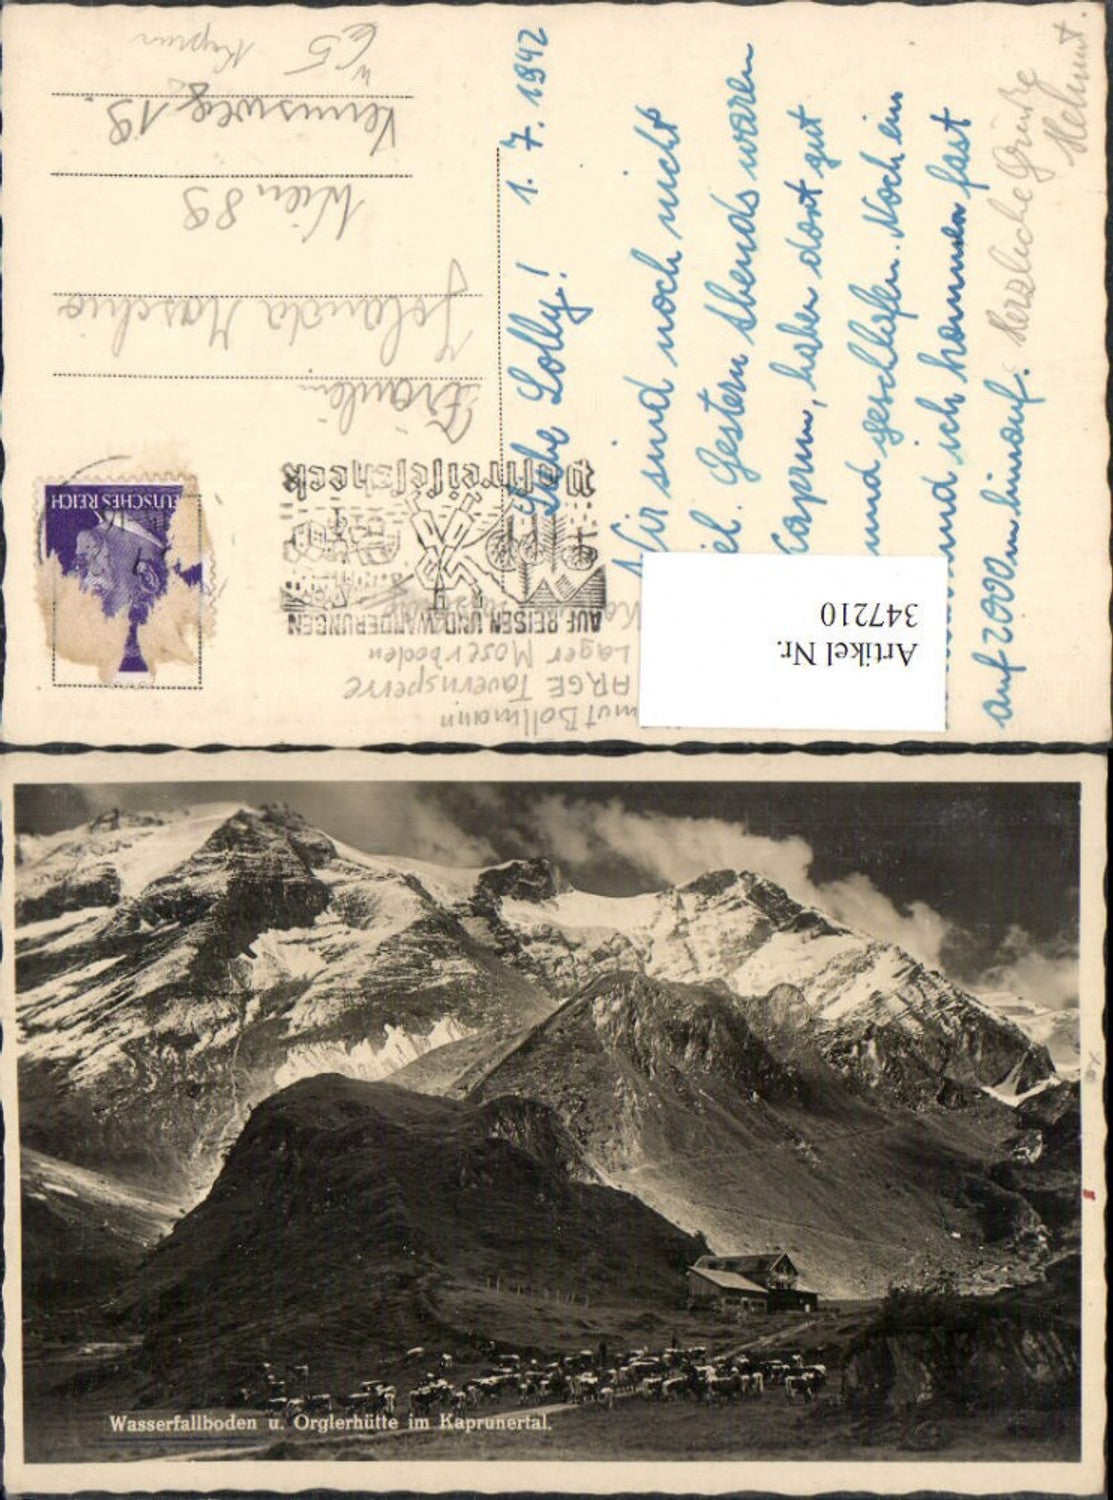 1. 7. 1942
Liebe Lolly!
Wir sind noch nicht
Gestern Abends waren
Kaprun, haben dort gut
und geschlafen. Noch ein
und ich kommen fast
auf 2000 m hinauf. Herzliche Grüße
Helmut.
Fräulein
Jolanda Maschio
Wien 89
19
65
Kaprun
DEUTSCHES REICH
AUF REISEN UND WANDERUNGEN
Postreisescheck
Bollmann
ARGE Tauernsperre
Lager Moserboden
Artikel Nr.
347210
Wasserfallboden u. Orglerhütte im Kaprunertal.